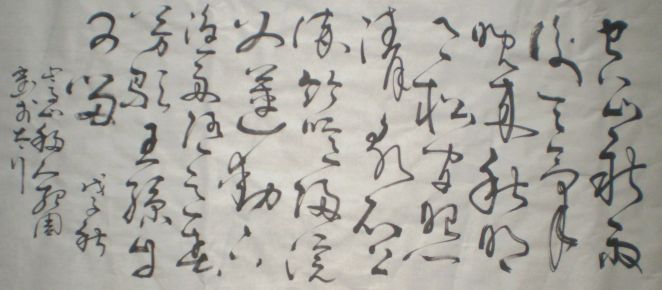 空山新雨
後天氣
晚來秋明
月松间照
清泉石上
流竹喧歸浣
女蓮動下
漁舟隨意春
芳歇王孫自
可留 戊子秋
山 人